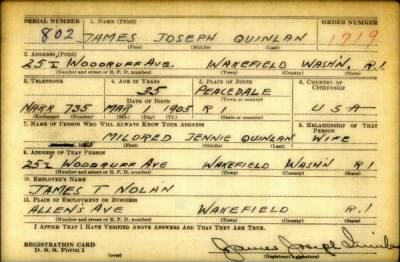 SERIAL NUMBER 1. NAME (Print) ORDER NUMBER
802 JAMES JOSEPH QUINLAN 1719
(First) (Middle) (Last)
2. ADDRESS (Print)
252 WOODRUFF AVE. WAKEFIELD WASH'N. R.I.
(Number and street or R. F. D. number) (Town) (County) (State)
3. TELEPHONE 4. AGE IN YEARS 5. PLACE OF BIRTH 6. COUNTRY OF CITIZENSHIP
35 PEACEDALE
DATE OF BIRTH (Town or county)
NARR 735 MAR 1 1905 R I U S A
(Exchange) (Number) (Mo.) (Day) (Yr.) (State or country)
7. NAME OF PERSON WHO WILL ALWAYS KNOW YOUR ADDRESS 8. RELATIONSHIP OF THAT PERSON
MILDRED JENNIE QUINLAN WIFE
(First) (Middle) (Last)
9. ADDRESS OF THAT PERSON
252 WOODRUFF AVE WAKEFIELD WASH'N R I
(Number and street or R. F. D. number) (Town) (County) (State)
10. EMPLOYER'S NAME
JAMES T NOLAN
11. PLACE OF EMPLOYMENT OR BUSINESS
ALLEN'S AVE WAKEFIELD R I
(Number and street or R. F. D. number) (Town) (County) (State)
I AFFIRM THAT I HAVE VERIFIED ABOVE ANSWERS AND THAT THEY ARE TRUE.
REGISTRATION CARD
D. S. S. FORM 1 (over) James Joseph Quinlan